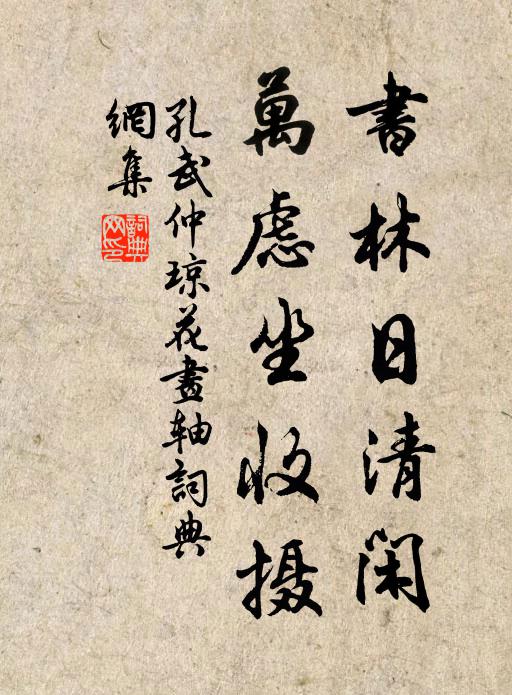 書林日清閑
萬慮坐收摄
孔武仲琼花畫軸詞典
網集
詞典網印